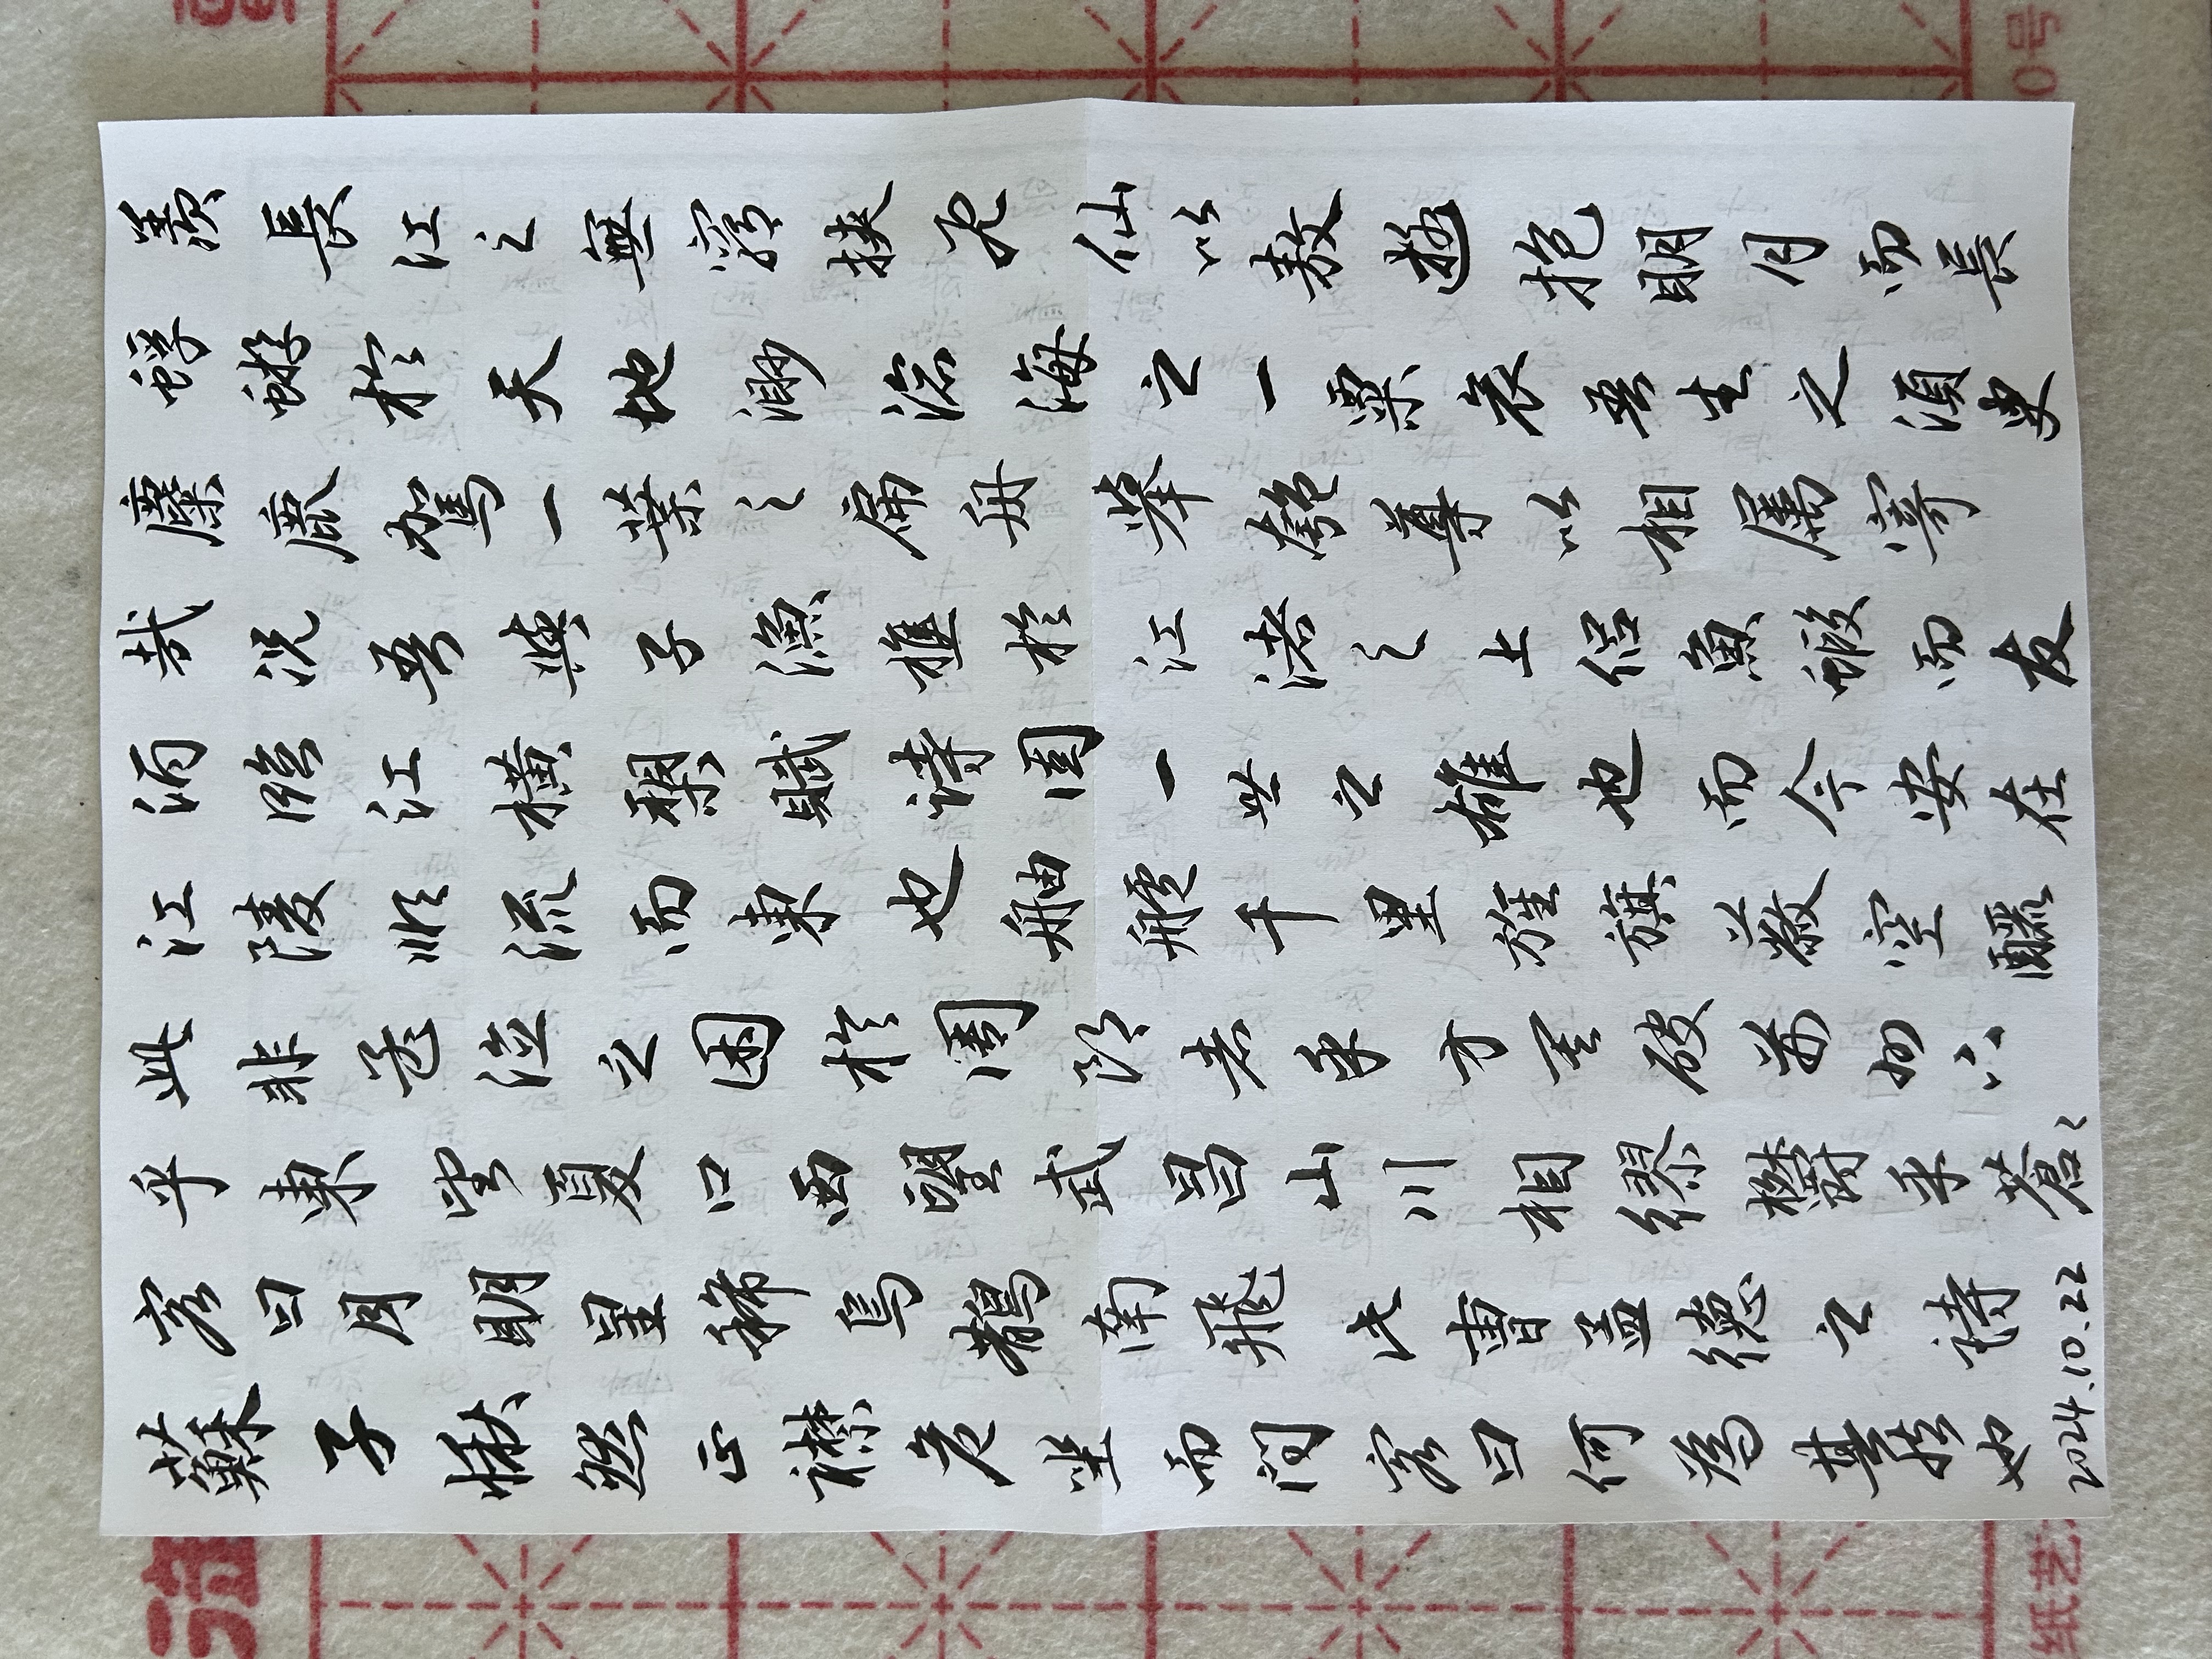 蘇子愀然正襟危坐而問客曰何為其然也
2024.10.22
客曰月明星稀烏鵲南飛此曹孟德之詩
乎東望夏口西望武昌山川相繆鬱乎蒼〻
此非孟德之困於周郎者乎方其破荊州下
江陵順流而東也舳艫千里旌旗蔽空釃
酒臨江橫槊賦詩固一世之雄也而今安在
哉況吾與子漁樵於江渚之上侶魚蝦而友
麋鹿駕一葉之扁舟舉匏尊以相屬寄
蜉蝣於天地渺滄海之一粟哀吾生之須臾
羨長江之無窮挾飛仙以敖遊抱明月而長
纸艺
0号